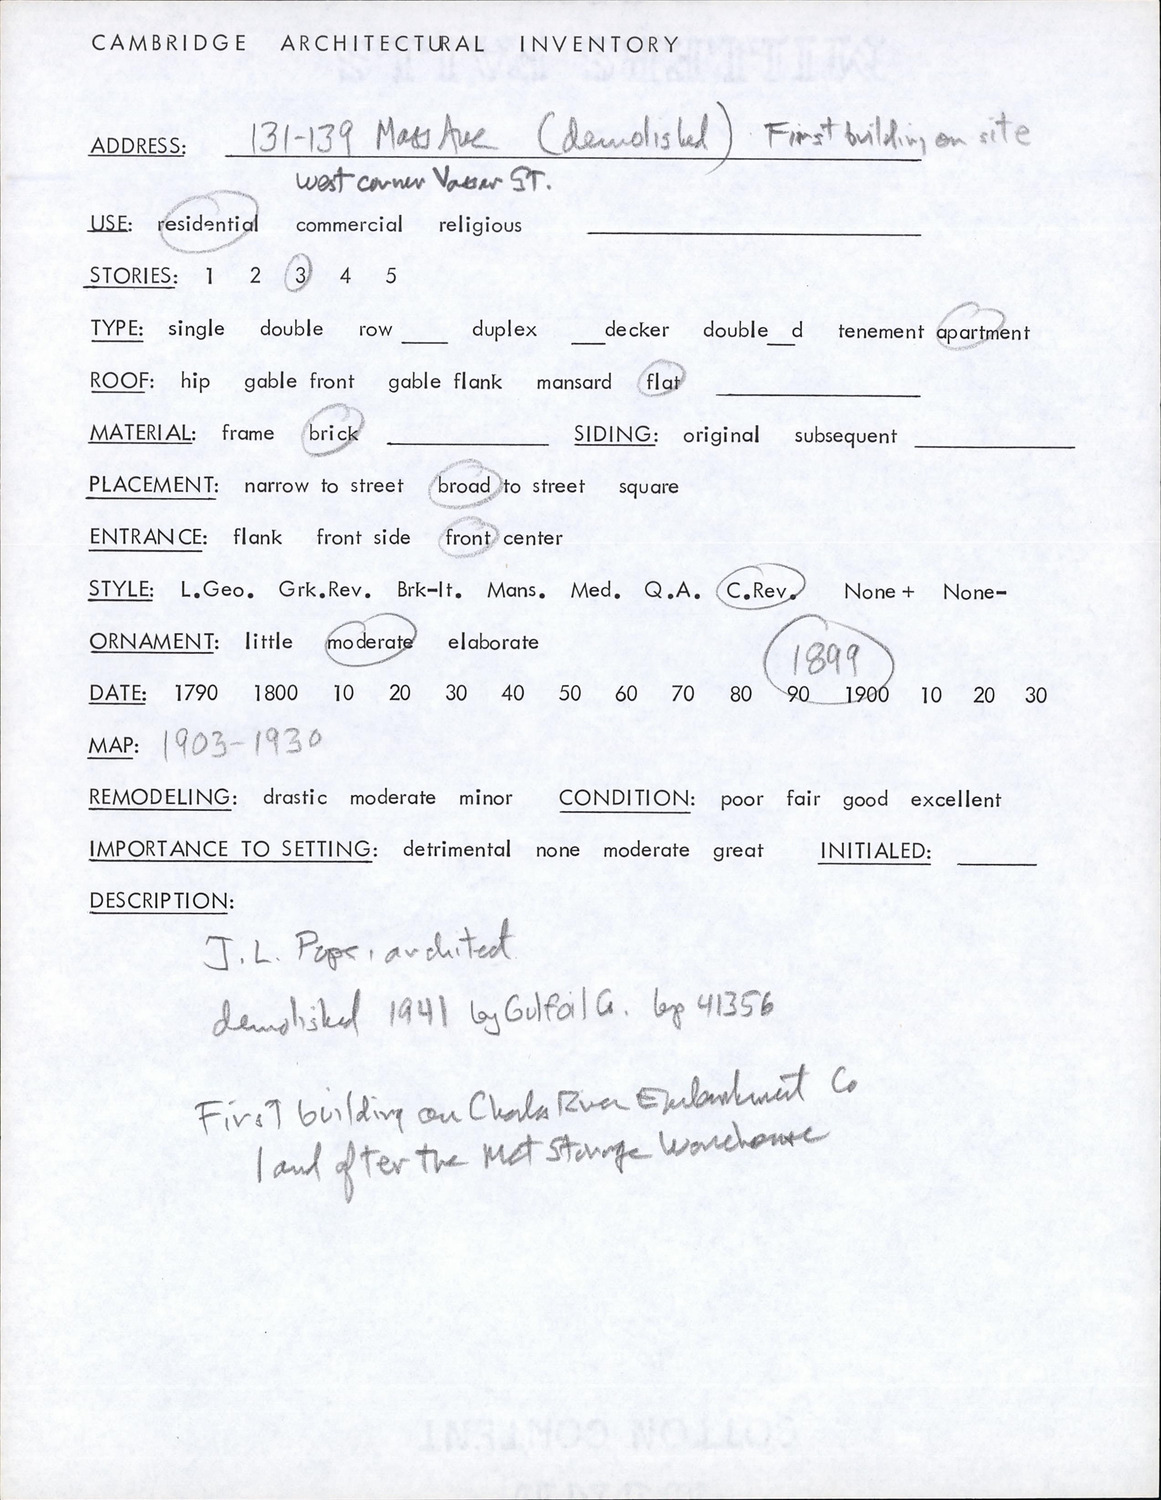 CAMBRIDGE ARCHITECTURAL INVENTORY
ADDRESS: 131-139 Mass Ave (demolished) First building on site
West corner Vassar ST.
USE: residential commercial religious
STORIES: 1 2 3 4 5
TYPE: single double row ____ duplex ___decker double__d tenement apartment
ROOF: hip gable front gable flank mansard flat
MATERIAL: frame brick SIDING: original subsequent
PLACEMENT: narrow to street broad to street square
ENTRANCE: flank front side front center
STYLE: L.Geo. Grk.Rev. Brk-It. Mans. Med. Q.A. C.Rev. None + None-
ORNAMENT: little moderate elaborate
1899
DATE: 1790 1800 10 20 30 40 50 60 70 80 90 1900 10 20 30
MAP: 1903-1930
REMODELING: drastic moderate minor CONDITION: poor fair good excellent
IMPORTANCE TO SETTING: detrimental none moderate great INITIALED:
DESCRIPTION:
J.L. Pope, architect
demolished 1941 by Gulf Oil Co. bp 41356
First building on Charles River Embankment Co
land after the Met Storage Warehouse